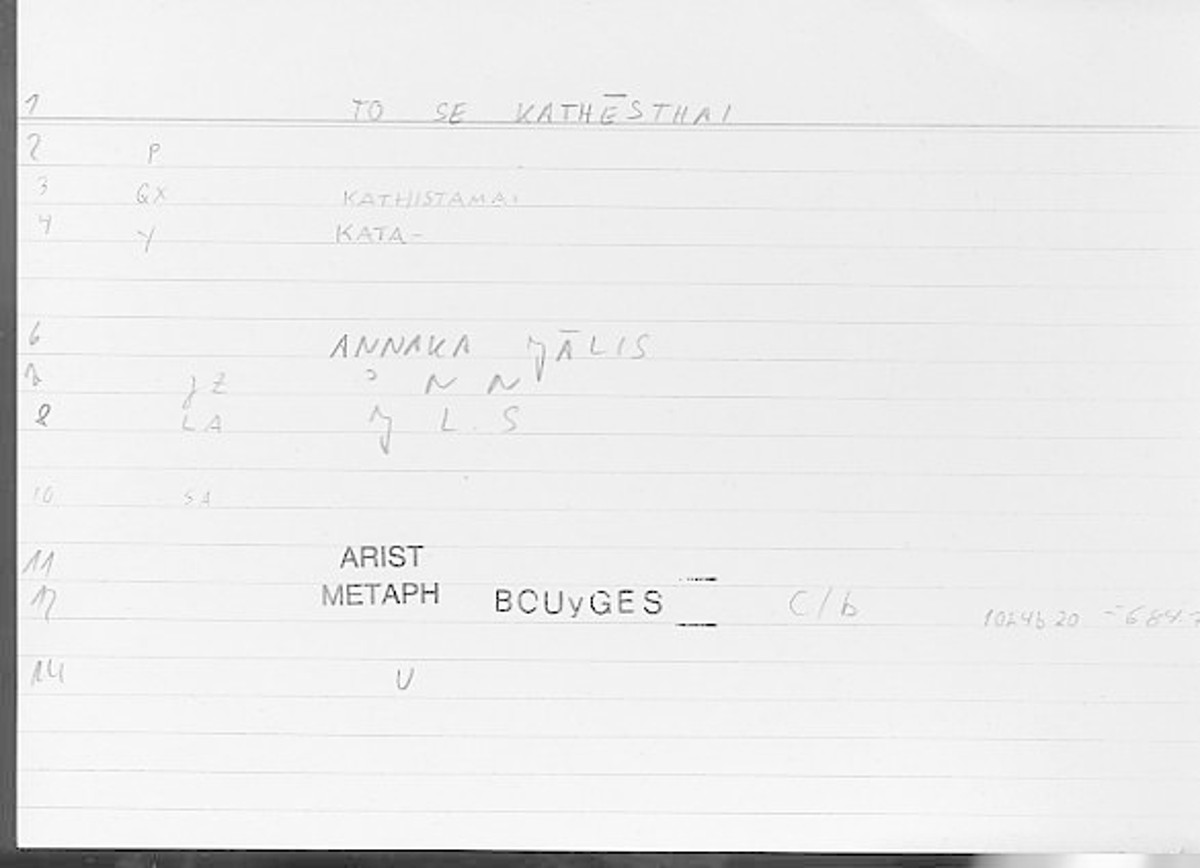 1 TO SE KATHĒSTHAI
2 P
3 GX KATHISTAMAI
4 Y KATA-
6 ANNAKA ȷĀLIS
7 ȷZ ʾ N N
8 LA ȷ L. S
10 SA
11 ARIST
12 METAPH BOUyGES C/b 1024b 20 - 684.7
14 U